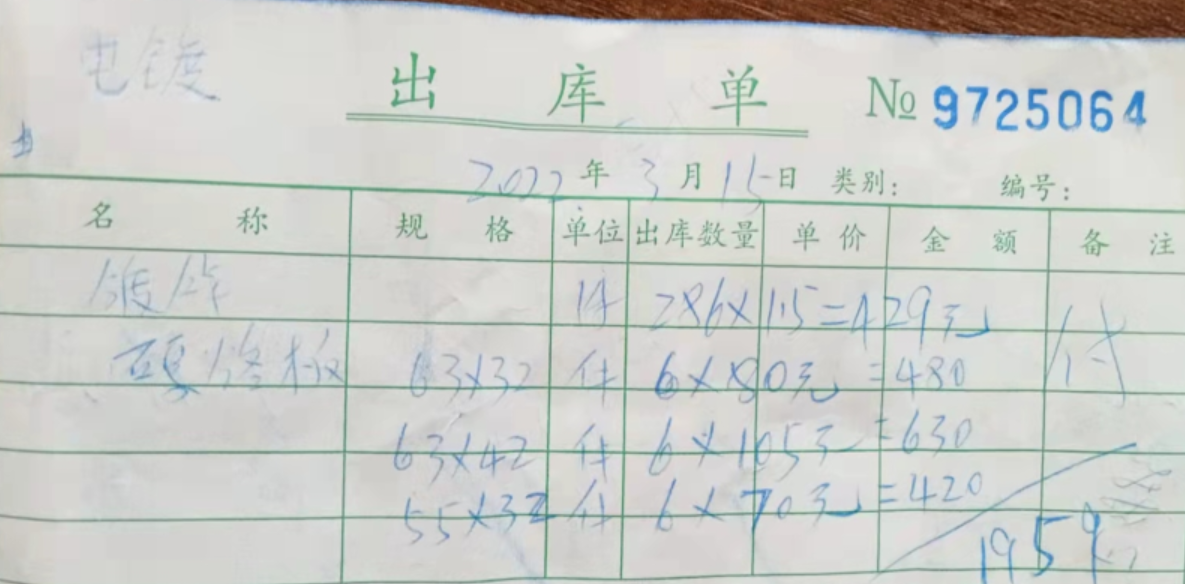 电镀
出 库 单 № 9725064
2022 年 3 月 15 日 类别: 编号:
名 称 规 格 单位 出库数量 单价 金 额 备 注
件 286×1.5=429元 付
63×32 件 6×80元 =480
63×42 件 6×105元 =630
55×32 件 6×70元 =420
1959